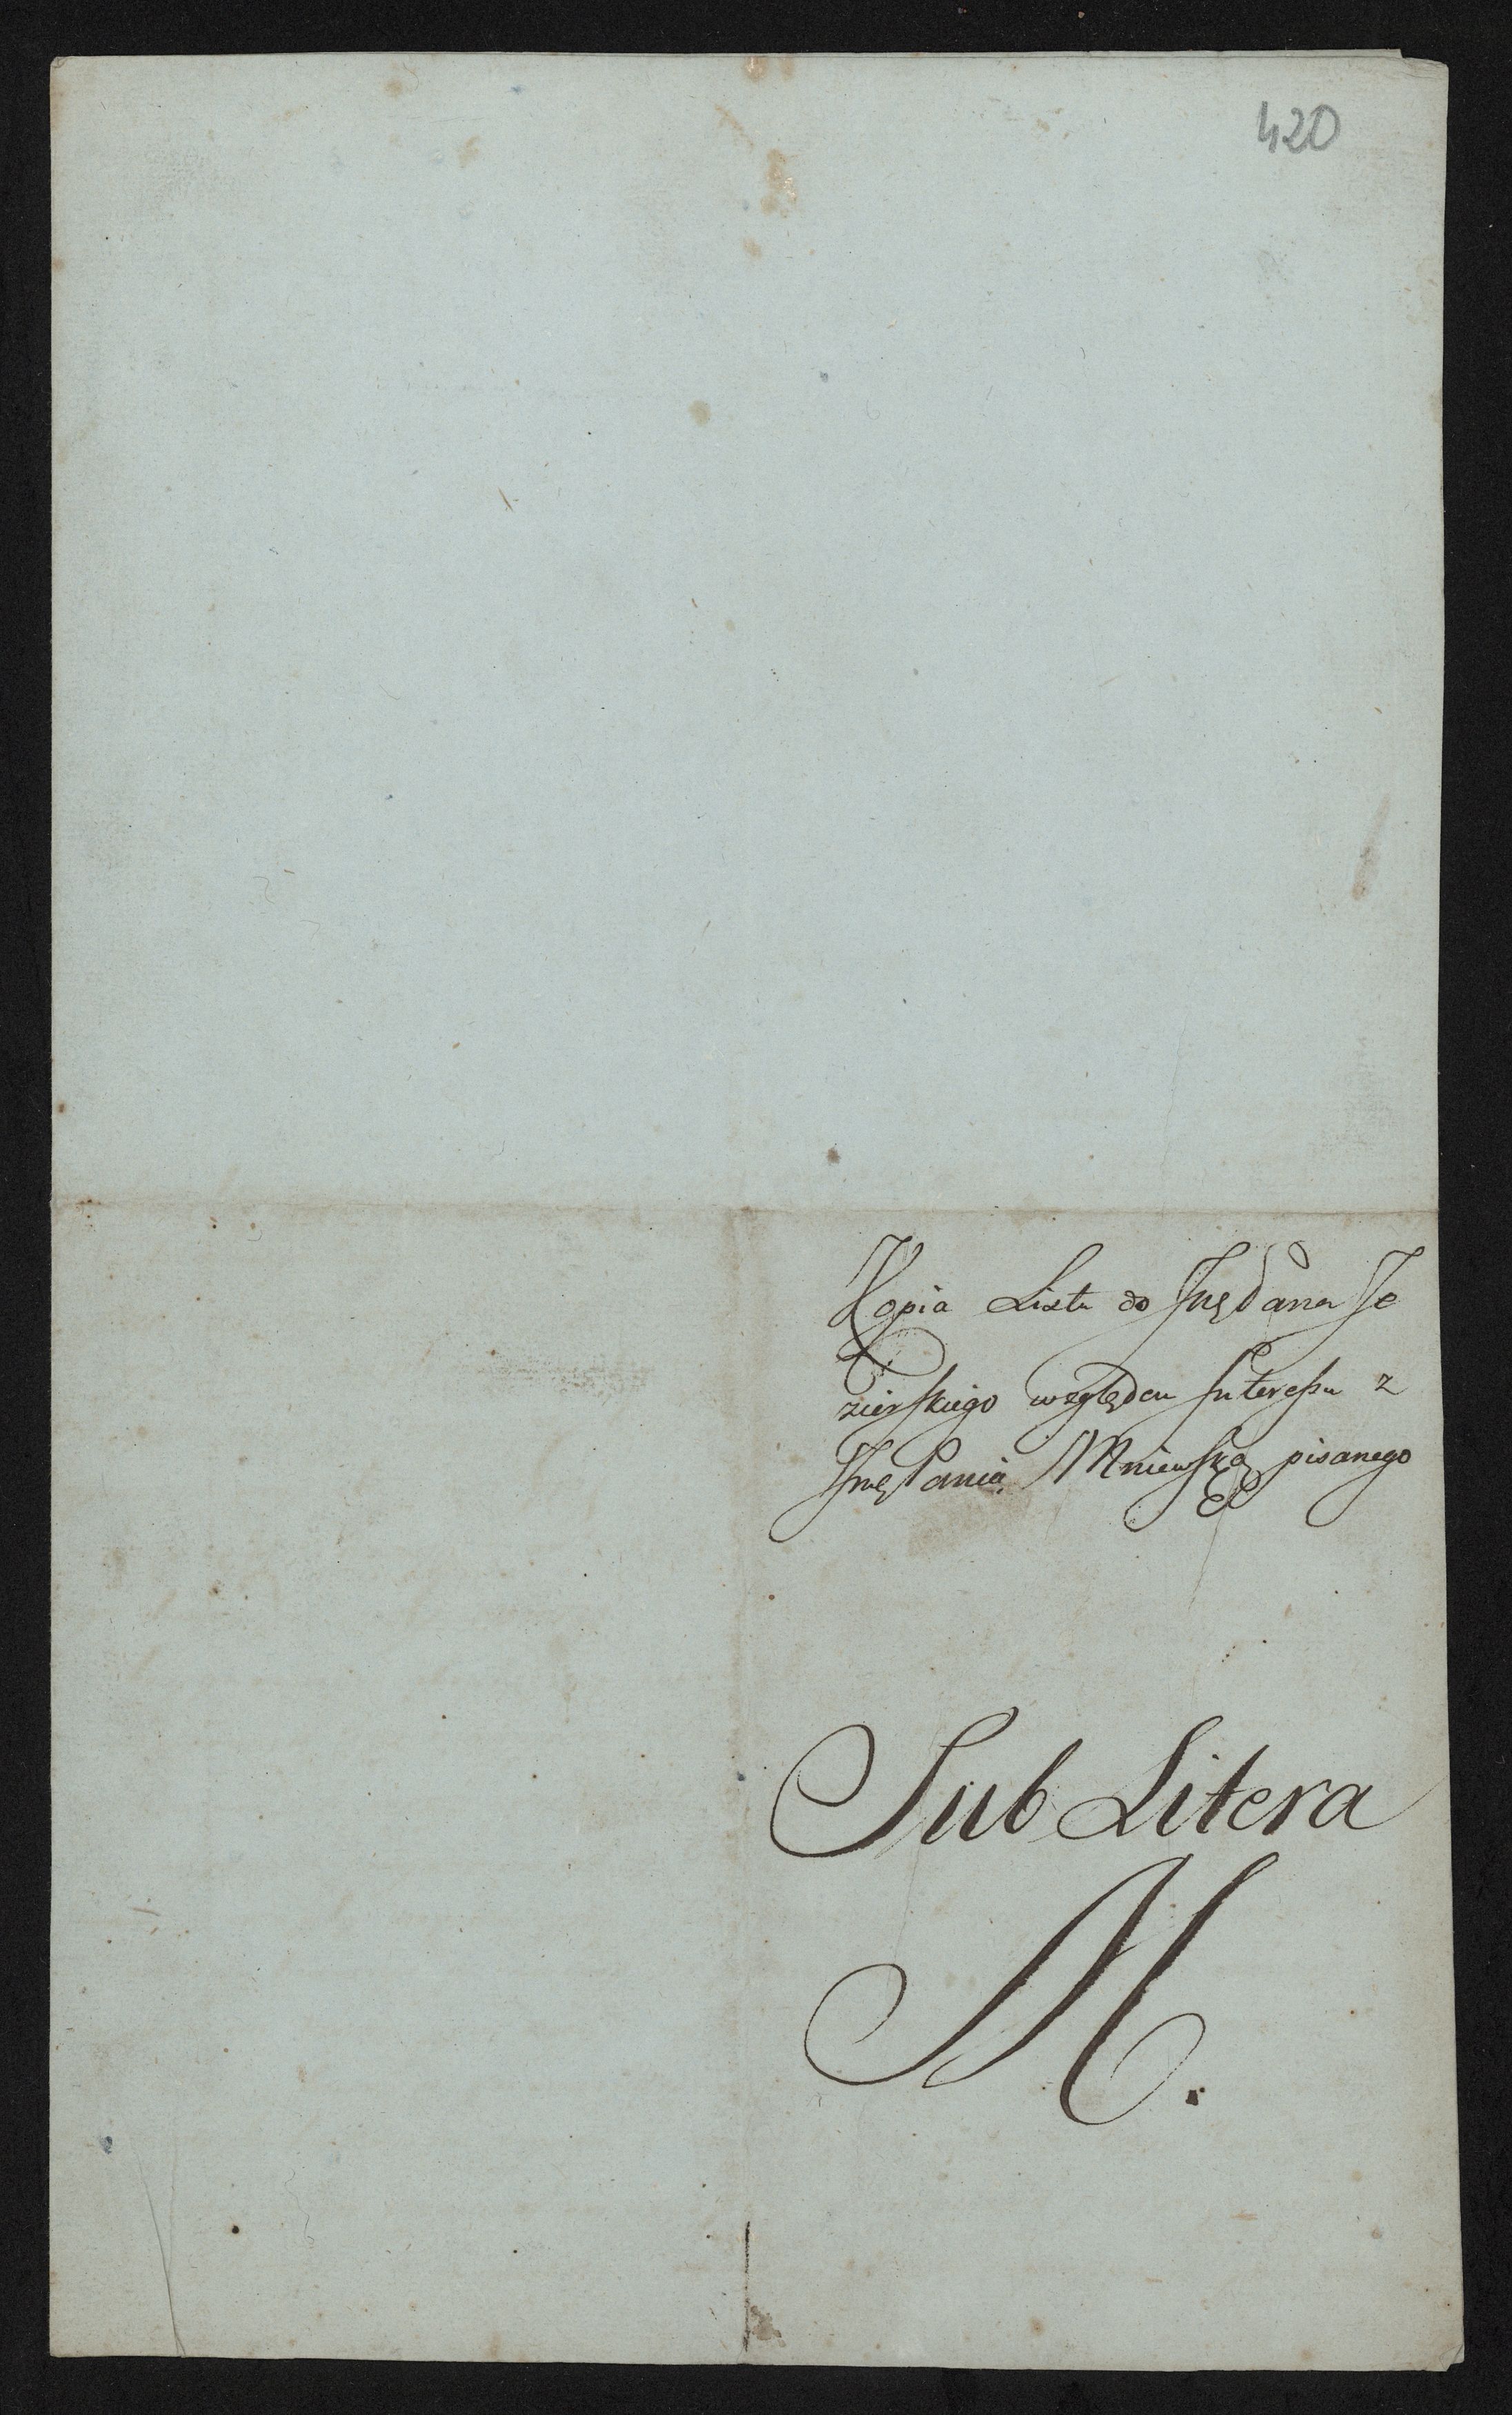 420
Kopia Listu do JmęPana Je
zierskiego względem Interessu z
JmęPanią Mniewską pisanego
Sub Litera
M.